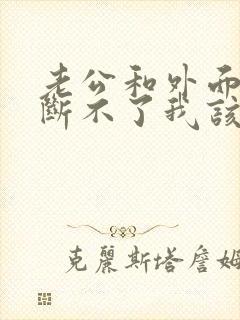 老公和外面
断不了我该
克麗斯塔詹姆